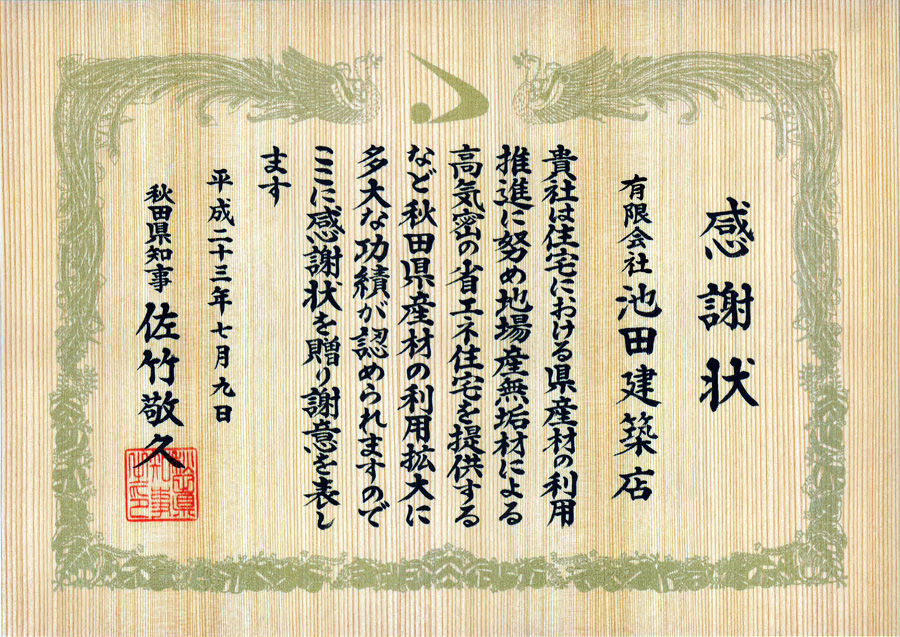 感謝状
有限会社 池田建築店
貴社は住宅における県産材の利用
推進に努め地場産無垢材による
高気密の省エネ住宅を提供する
など秋田県産材の利用拡大に
多大な功績が認められますので
ここに感謝状を贈り謝意を表し
ます
平成二十三年七月九日
秋田県知事 佐竹敬久